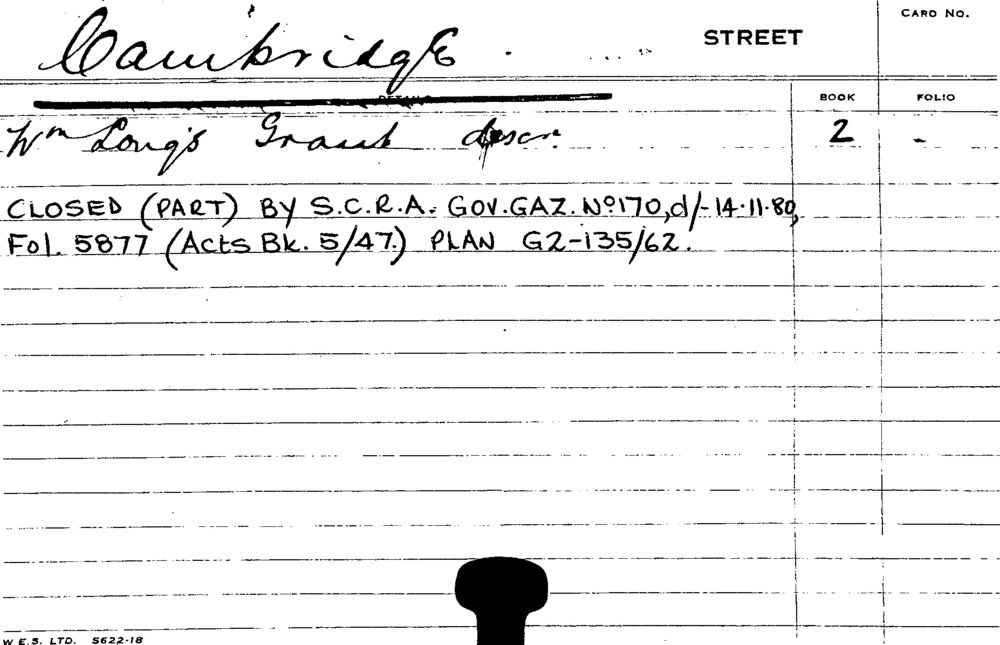 CARD NO.
Cambridge STREET
DETAILS BOOK FOLIO
Wm Long's Grant descr. 2 -
CLOSED (PART) BY S.C.R.A. GOV.GAZ. Nº170, d/-14.11.80,
Fol. 5877 (Acts Bk. 5/47.) PLAN G2-135/62.
W.E.S. LTD. S622-18